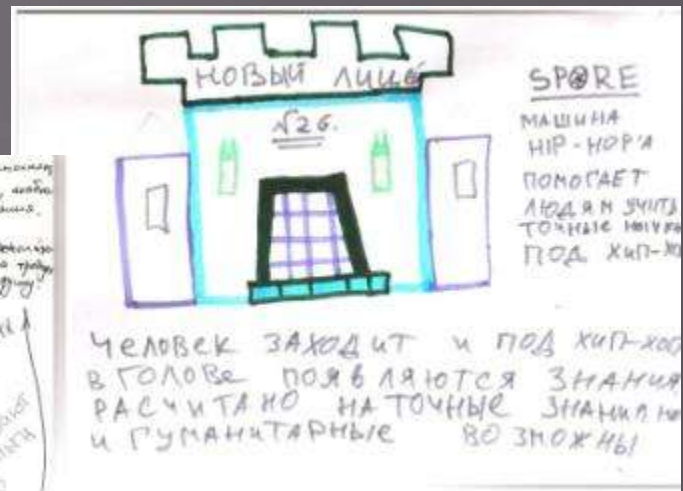 НОВЫЙ ЛИЦЕ
√26.
SPORE
МАШИНА
HIP-HOP'А
ПОМОГАЕТ
ЛЮДЯМ УЧИТЬ
ТОЧНЫЕ НАУКИ
ПОД ХИП-ХО
ЧЕЛОВЕК ЗАХОДИТ И ПОД ХИП-ХОП
В ГОЛОВЕ ПОЯВЛЯЮТСЯ ЗНАНИЯ
РАСЧИТАНО НА ТОЧНЫЕ ЗНАНИЯ НО
И ГУМАНИТАРНЫЕ ВОЗМОЖНЫ